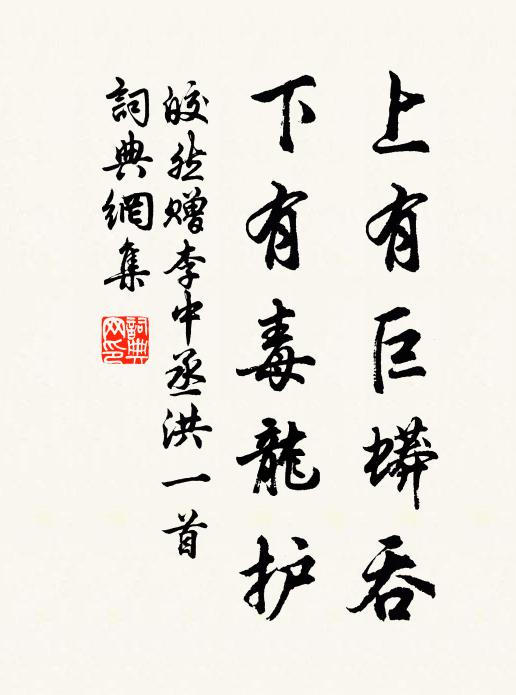 上有巨蟒吞
下有毒龍护
皎然赠李中丞洪一首
詞典網集
詞典网印